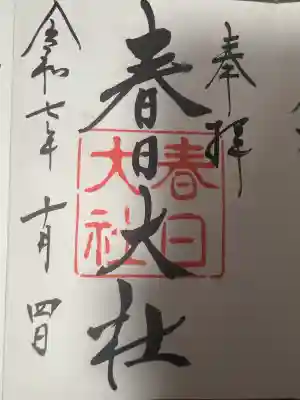 奉拝
春日大社
春日大社
令和七年 十月 四日